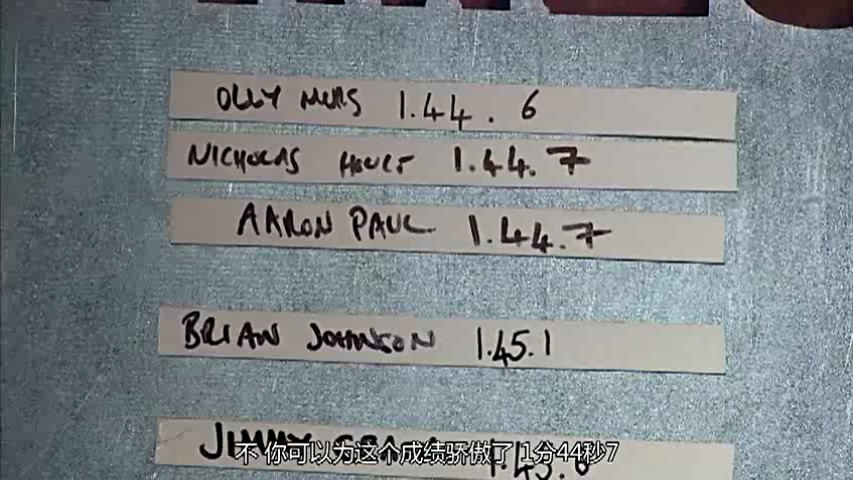 OLLY MURS 1.44.6
NICHOLAS HOULT 1.44.7
AARON PAUL 1.44.7
BRIAN JOHNSON 1.45.1
JIMMY
不 你可以为这个成绩骄傲了 1分44秒7